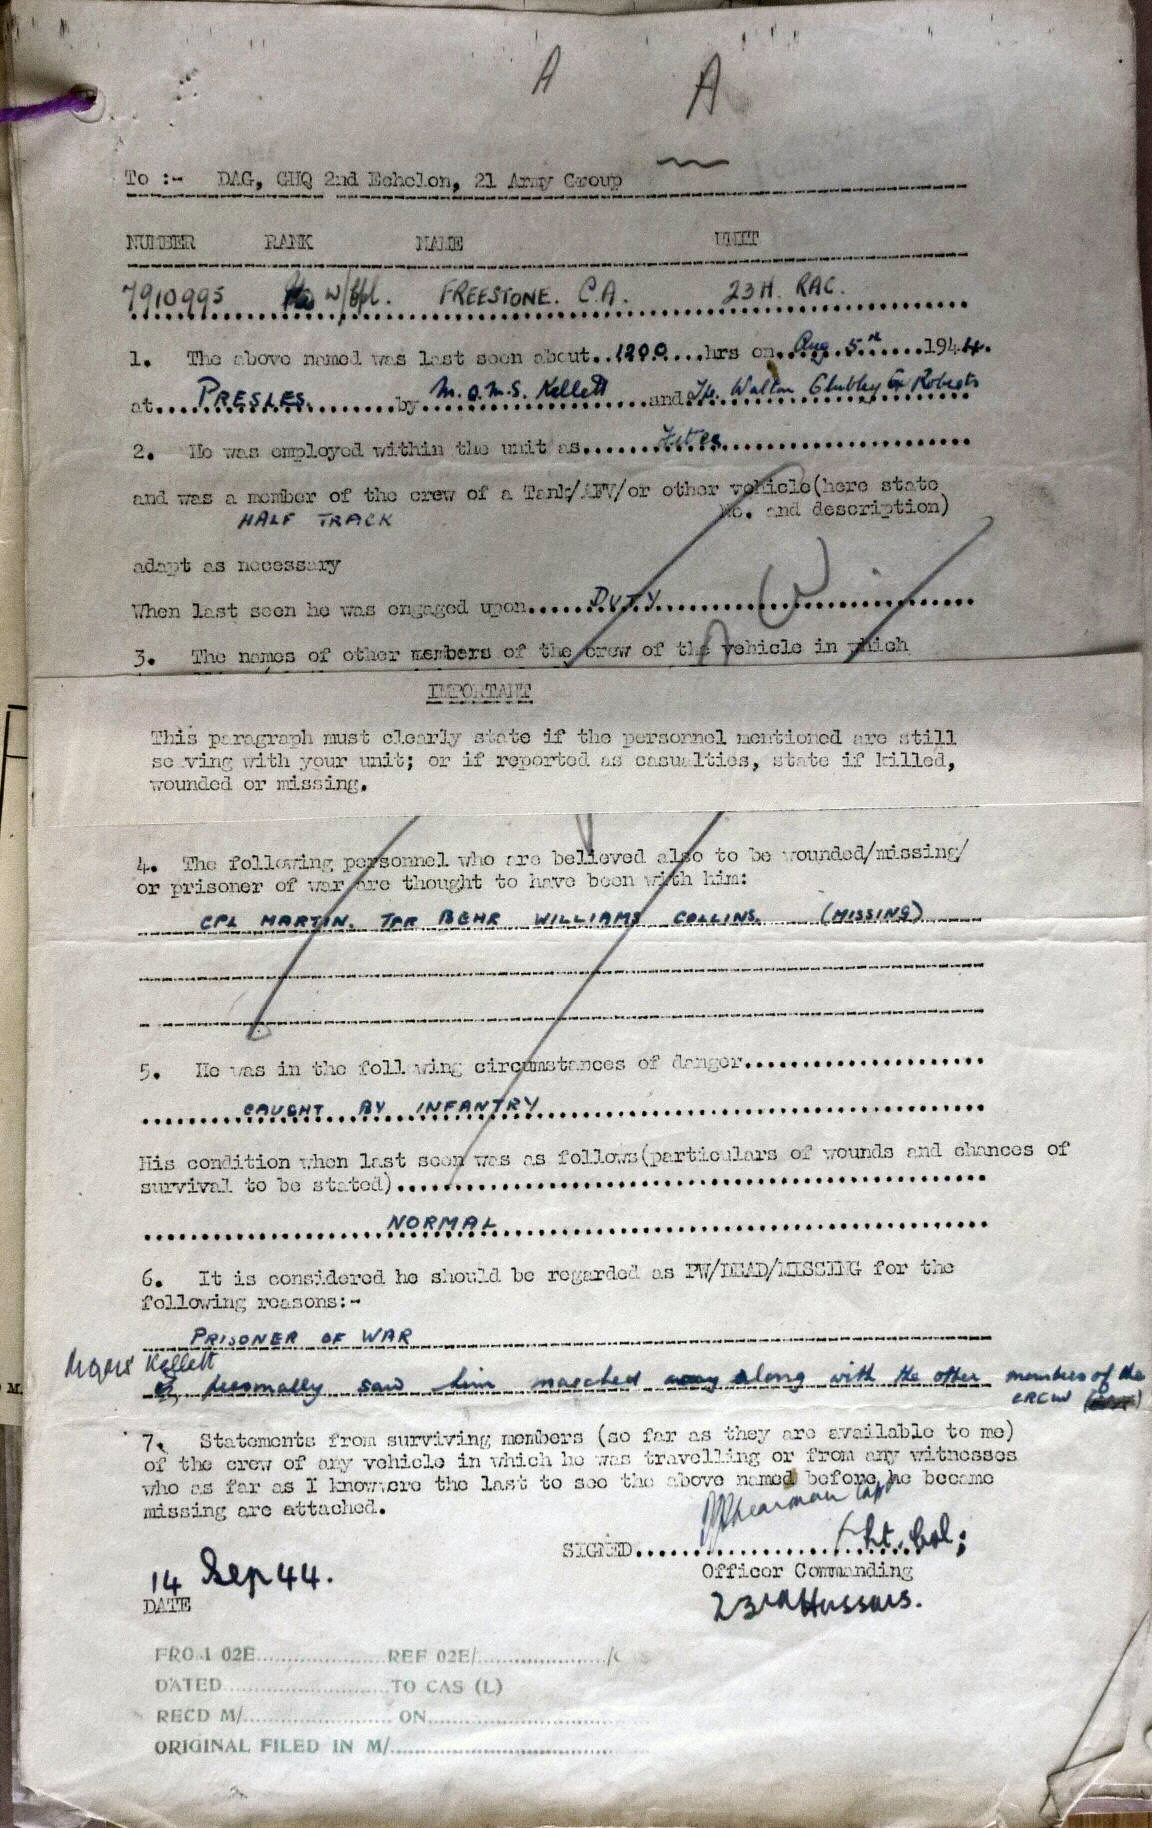 A A
To :- DAG, GHQ 2nd Echelon, 21 Army Group
NUMBER RANK NAME UNIT
7910995 W/Cpl. FREESTONE. C.A. 23 H. RAC.
1. The above named was last seen about..1200....hrs on...Aug. 5th.......1944.
at...PRESLES..........by M.Q.M.S. Kellett....and Tpr. Walton Clubley & Roberts
2. He was employed within the unit as.......Fitter.......
and was a member of the crew of a Tank/AFV/or other vehicle(here state
No. and description)
HALF TRACK
adapt as necessary
When last seen he was engaged upon......DUTY..........
3. The names of other members of the crew of the vehicle in which
IMPORTANT
This paragraph must clearly state if the personnel mentioned are still
se ving with your unit; or if reported as casualties, state if killed,
wounded or missing.
4. The following personnel who are believed also to be wounded/missing/
or prisoner of war are thought to have been with him:
CPL MARTIN. TPR BEHR WILLIAMS COLLINS. (MISSING)
5. He was in the foll wing circumstances of danger.....................
CAUGHT BY INFANTRY
His condition when last seen was as follows(particulars of wounds and chances of
survival to be stated)..................
NORMAL
6. It is considered he should be regarded as PW/DEAD/MISSING for the
following reasons:-
PRISONER OF WAR
Kellett
personally saw him marched away along with the other members of the
CREW
7. Statements from surviving members (so far as they are available to me)
of the crew of any vehicle in which he was travelling or from any witnesses
who as far as I know were the last to see the above named before he became
missing are attached.
Capt
SIGNED.................... Lt. Col;
Officer Commanding
14 Sep 44. 23rd Hussars.
DATE
FROM 02E....................REF 02E/..................../CAS
DATED........................TO CAS (L)
RECD M/...................... ON........................
ORIGINAL FILED IN M/................................